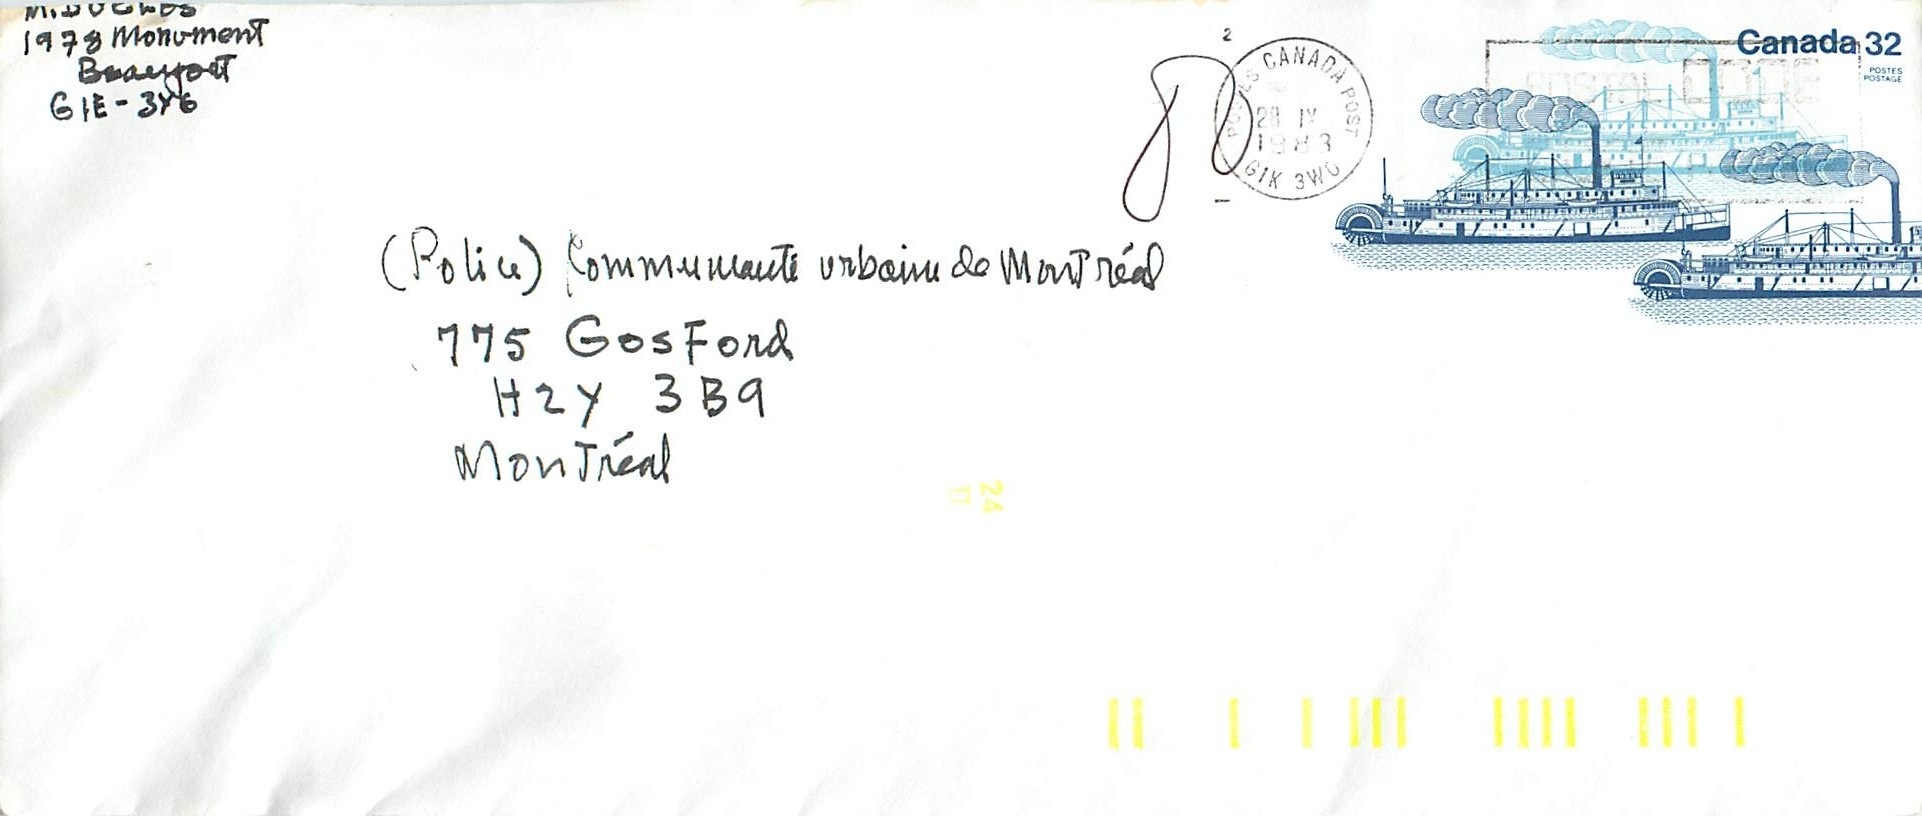 1978 Monument
Beauport
G1E-3Y6
2
POSTES CANADA POST
20 IV
1983
G1K 3W0
Canada 32
POSTES
POSTAGE
POSTAL CODE
(Police) Communauté urbaine de Montréal
775 GosFord
H2Y 3B9
Montréal
24